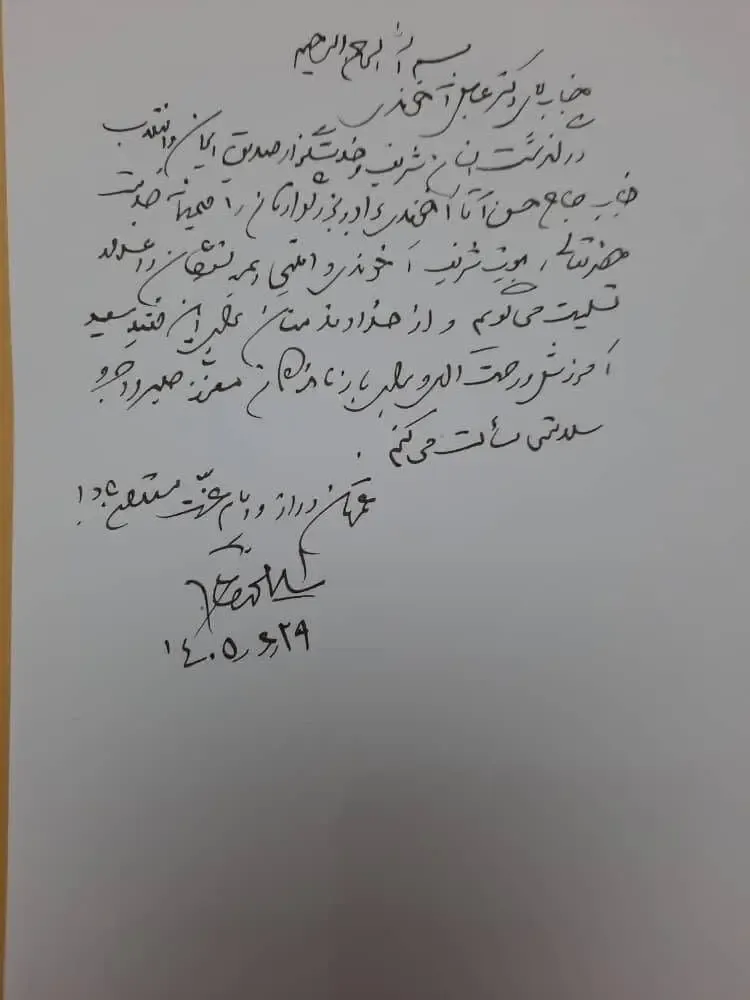 بسم الله الرحمن الرحیم
جناب آقای دکتر عباس آخوندی
درگذشت انسان شریف و خدمتگزار صدیق ایران و انقلاب
جناب حاج حسن آقا آخوندی برادر بزرگوارتان را صمیمانه خدمت
حضرتعالی، بیت شریف آخوندی و تمامی بستگان داغدار
تسلیت می‌گویم و از خداوند منان برای این فقید سعید
آمرزش و رحمت الهی و برای بازماندگان معزز صبر و اجر و
سلامتی مسألت می‌کنم.
عمرتان دراز و ایام عزت مستدام باد!
۱۴۰۵٫۶٫۲۹